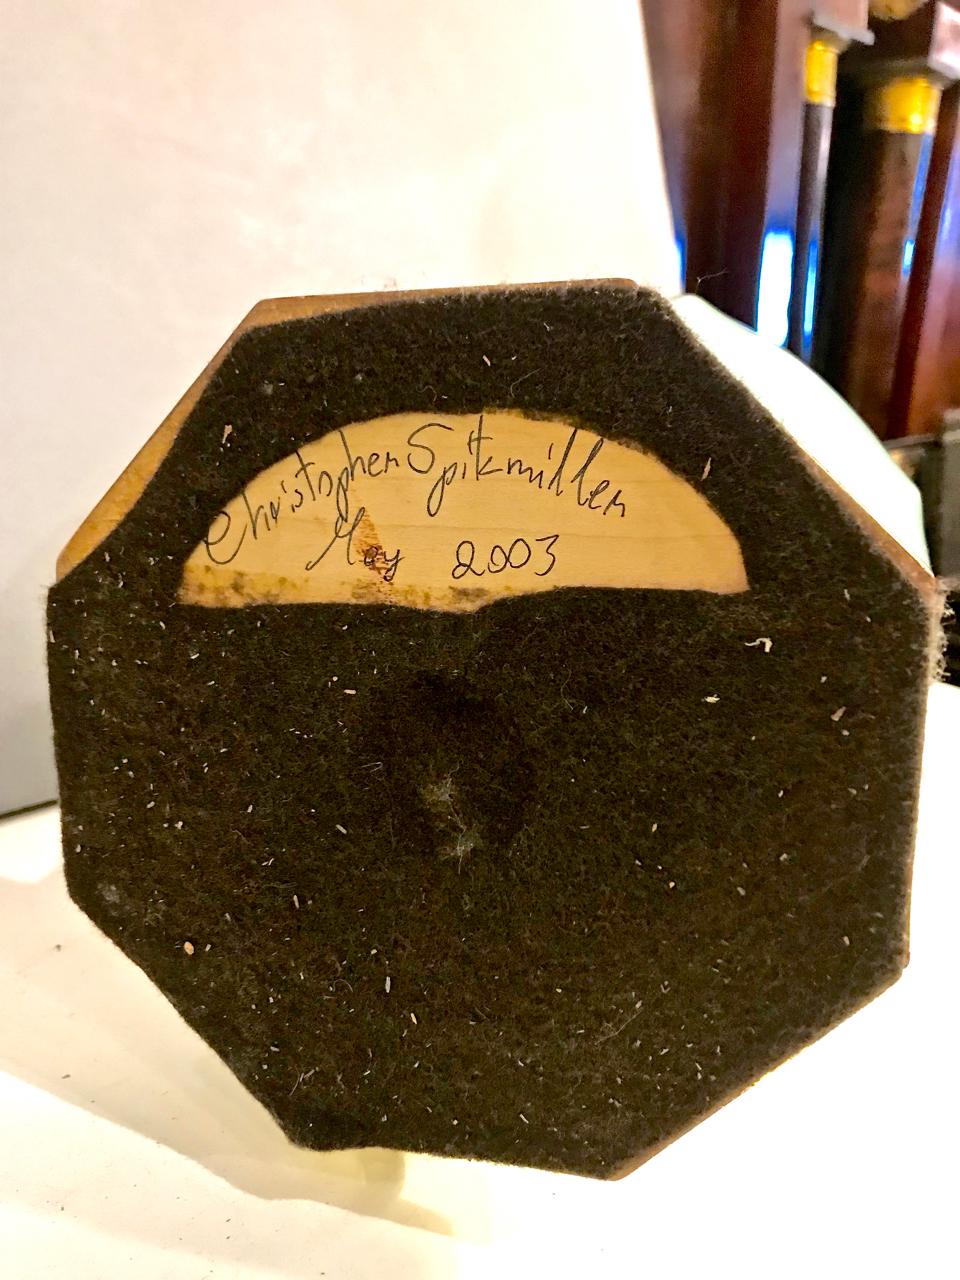 Christopher Spitzmiller
May 2003